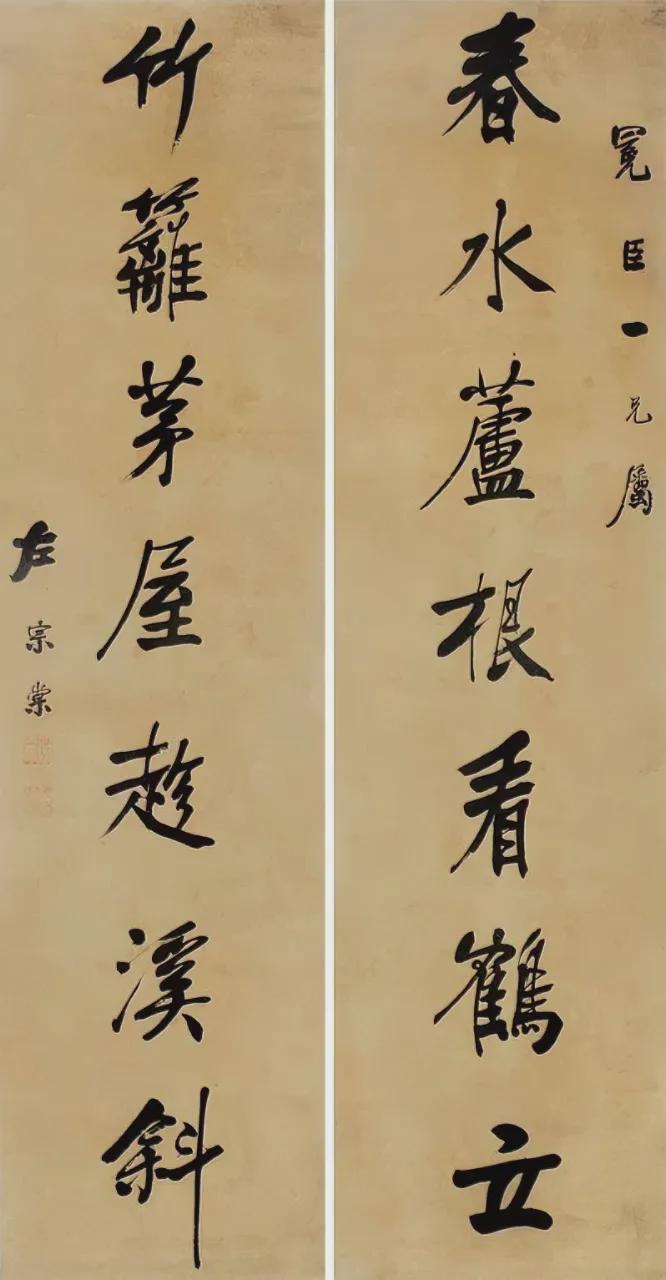 冕臣一兄属
春水蘆根看鶴立
竹籬茅屋趁溪斜
左宗棠